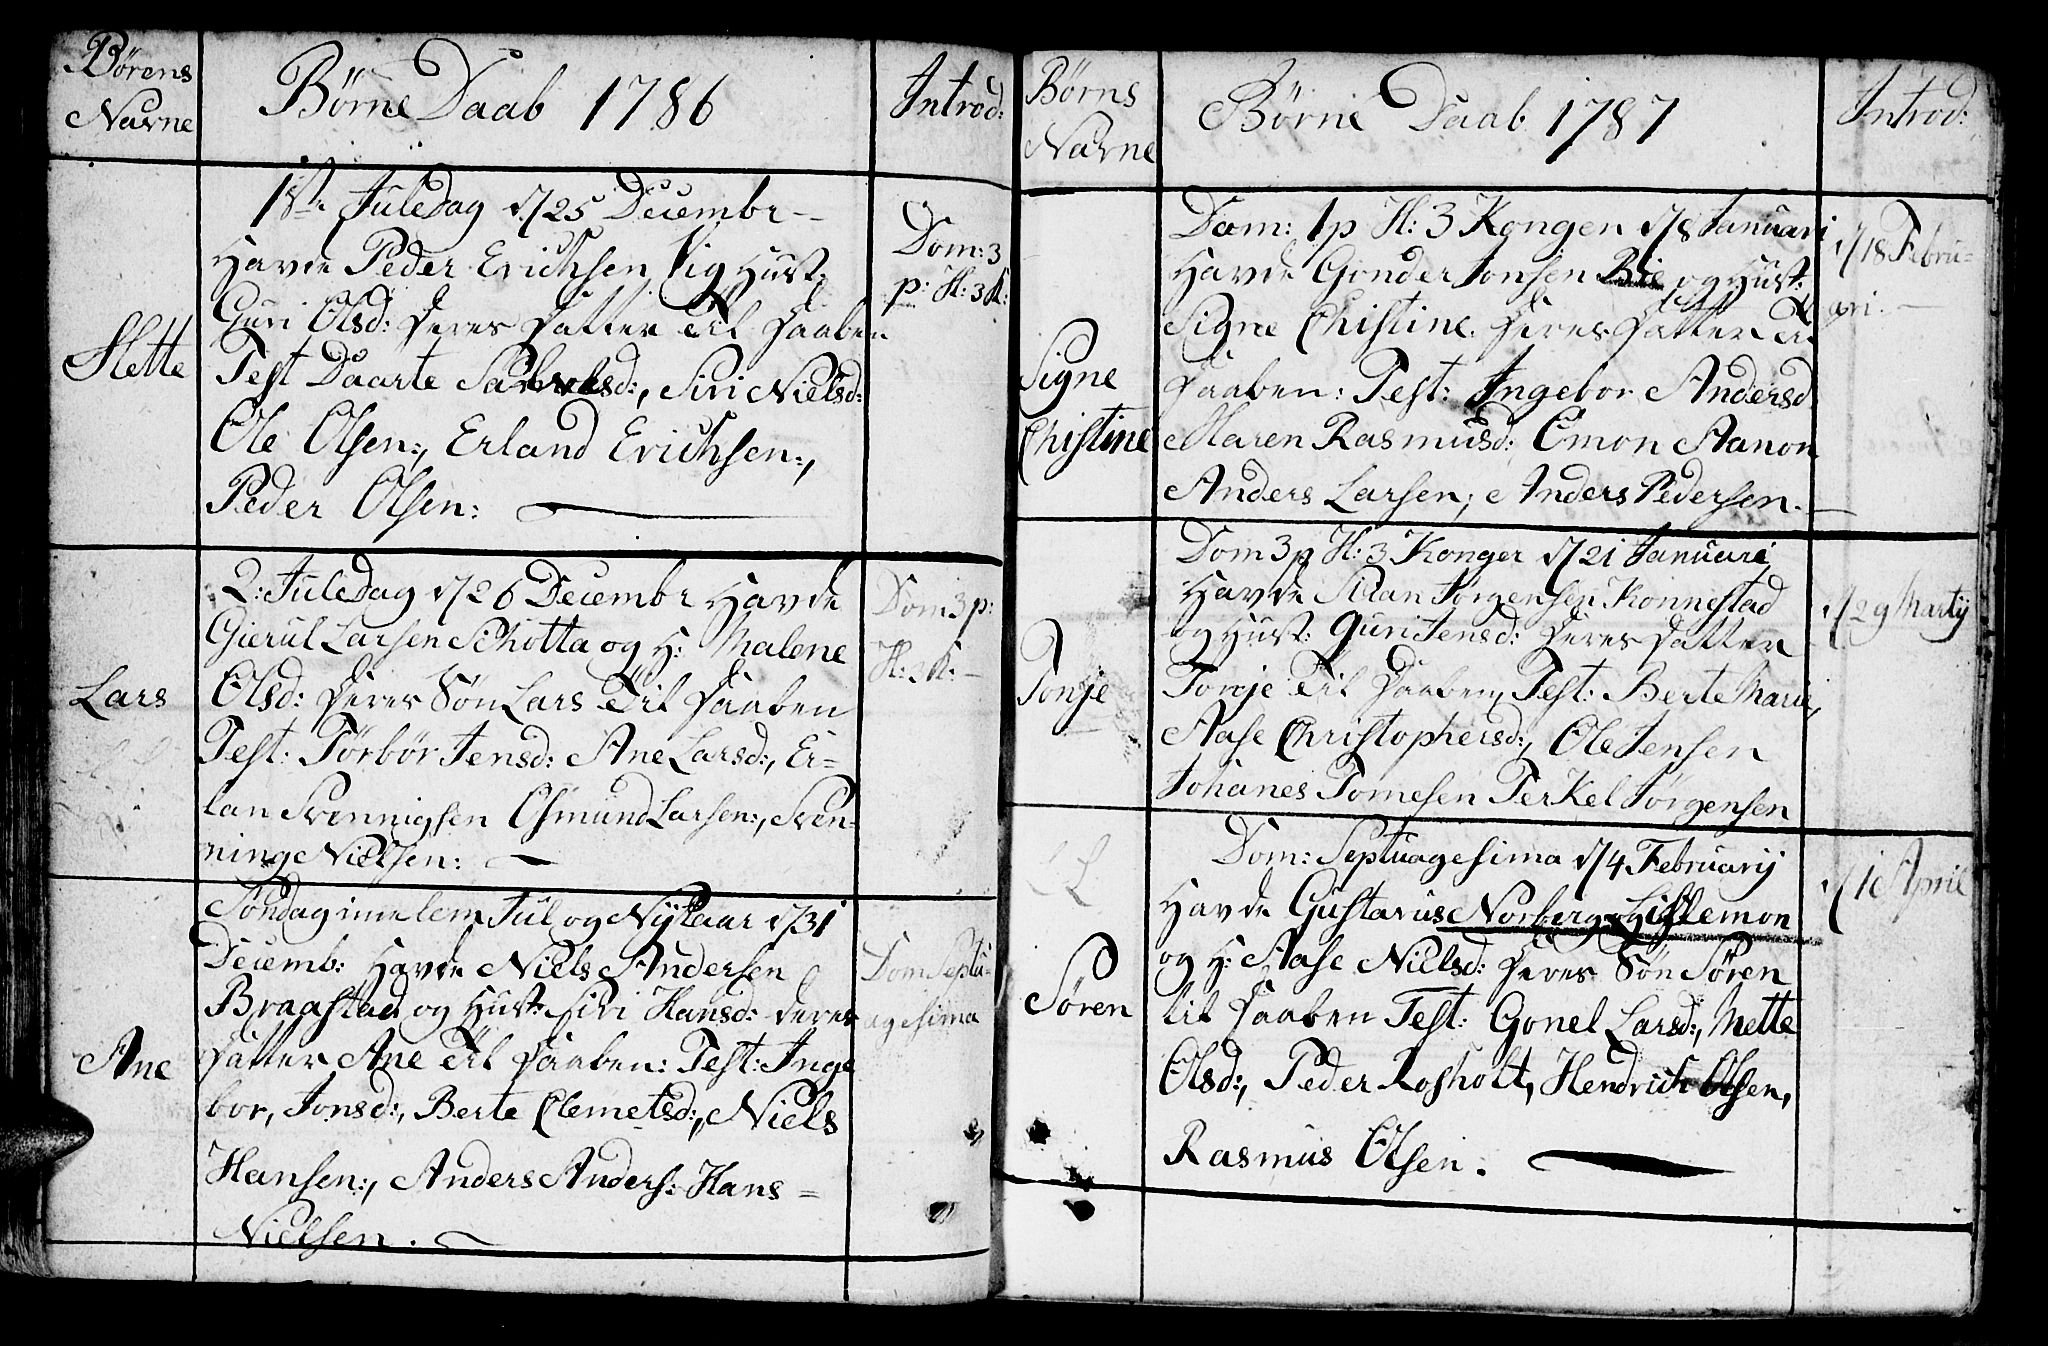 Børens
Navne
Børne Daab 1786
Introd:
1ste Juledag d/25 Decembr
Havde Peder Erichsen Vig Hust:
Guri Olsd: Deres Datter Til Daaben
Test Daarte Siri Nielsd:
Ole Olsen:, Erland Erichsen:,
Peder Olsen:
Mette
Dom: 3
p: H: 3 K:
2: Juledag d/26 Decembr Havde
Gierul Larsen Schotta og H: Malene
Olsd: Deres Søn Lars Til Daaben
Test: Tørbør Jensd: Ane Larsd:, Er=
lan Svennigsen Osmund Larsen:, Sven=
ning Nielsen:
Lars
Dom 3 p:
H: 3 K:
Søndag imelem Jul og Nytaar d/31
Decemb: Havde Niels Andersen
Braastad og Hust: Siri Hansd: deres
Datter Ane Til Daaben: Test: Inge
bor, Jonsd:, Berte Clemetsd:, Niels
Hansen:, Anders Anders: Hans=
Nielsen.
Ane
Dom Septu=
agesima
Børns
Navne
Børne Daab 1787
Introd:
Dom: 1 p H: 3 Kongen d/8 Januari
Havde Gonder Jonsen Bie og Hust:
Signe Christine. Deres Datter
Daaben: Test: Ingebor Andersd
Maren Rasmusd: Omon Aanon
Anders Larsen, Anders Pedersen.
Signe
Christine
d/18 Febru=
ari.
Dom 3 p H: 3 Konger d/21 Januari
Havde Jørgensen Konnestad
og Hust: Guri Jensd: Deres Datter
Tonje Til Daaben, Test: Berte Marie,
Aase Christophersd:, Ole Jensen
Johanes Tomesen Terkel Jørgensen
Tonje
d/29 Martij
Dom: Septuagesima d/4 Februarij
Havde Gustavus Norberg
og H: Aase Nielsd: Deres Søn Søren
til Daaben Test: Gonel Larsd:, Mette
Olsd:, Peder Rosholt, Hendrich Olsen,
Rasmus Olsen.
Søren
d/1 April